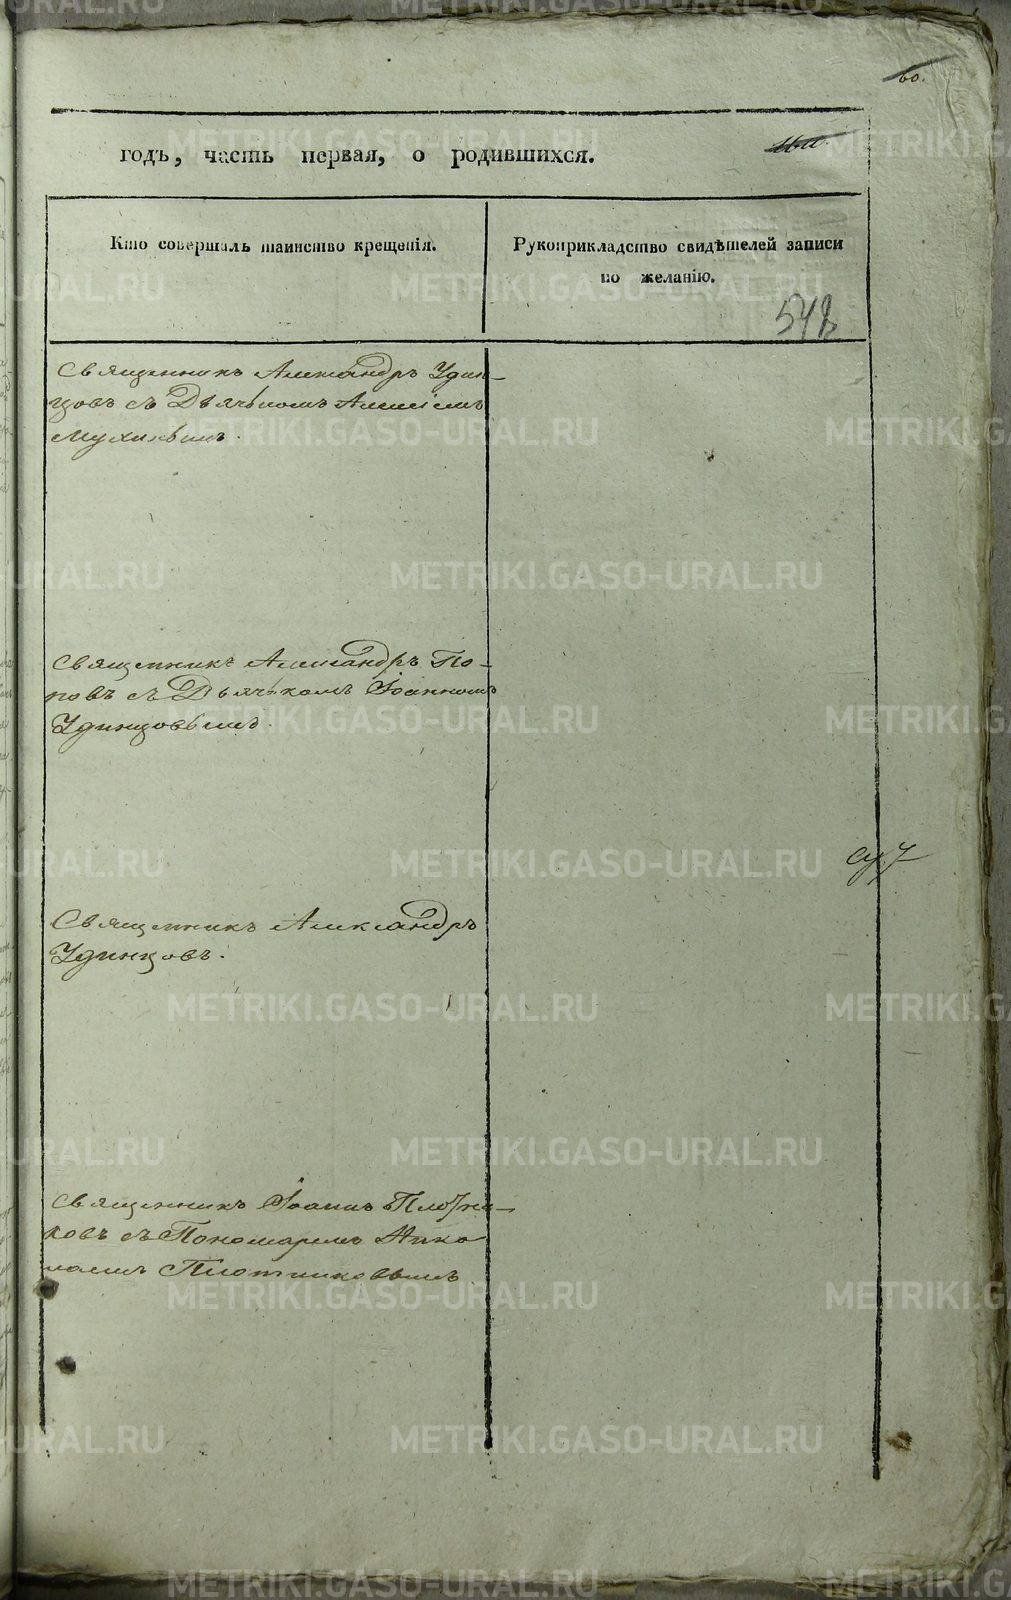 60.
годъ, часть первая, о родившихся.
Кто совершалъ таинство крещенія.
Рукоприкладство свидѣтелей записи
по желанію.
542
Священникъ Александръ Удин-
цовъ съ Дьячкомъ Алексіемъ
Священникъ Александръ По-
повъ съ Дьячкомъ Іоанномъ
Удинцовымъ.
Священникъ Александръ
Удинцовъ.
Священникъ Іоаннъ Плотни-
ковъ съ Пономаремъ Нико
лаемъ Плотниковымъ
METRIKI.GASO-URAL.RU